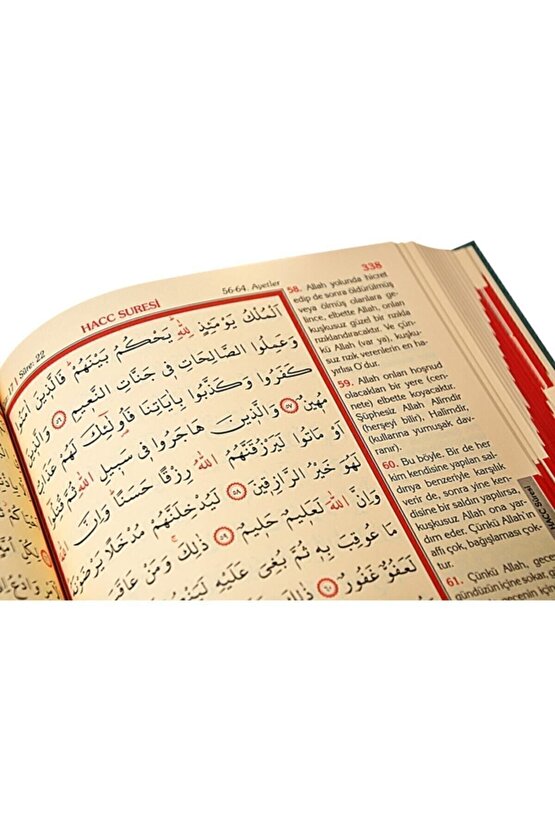 338
56-64. Ayetler
HACC SURESİ
Sûre: 22
اَلْمُلْكُ يَوْمَئِذٍ لِلّٰهِ يَحْكُمُ بَيْنَهُمْ فَالَّذِينَ اٰمَنُوا
وَعَمِلُوا الصَّالِحَاتِ فِى جَنَّاتِ النَّعِيمِ ٥٦ وَالَّذِينَ
كَفَرُوا وَكَذَّبُوا بِاٰيَاتِنَا فَاُولٰئِكَ لَهُمْ عَذَابٌ
مُهِينٌ ٥٧ وَالَّذِينَ هَاجَرُوا فِى سَبِيلِ اللّٰهِ ثُمَّ قُتِلُوا
اَوْ مَاتُوا لَيَرْزُقَنَّهُمُ اللّٰهُ رِزْقًا حَسَنًا وَاِنَّ اللّٰهَ
لَهُوَ خَيْرُ الرَّازِقِينَ ٥٨ لَيُدْخِلَنَّهُمْ مُدْخَلًا يَرْضَوْنَهُ
وَاِنَّ اللّٰهَ لَعَلِيمٌ حَلِيمٌ ٥٩ ذٰلِكَ وَمَنْ عَاقَبَ
مَا عُوقِبَ بِهِ ثُمَّ بُغِىَ عَلَيْهِ
لَعَفُوٌّ غَفُورٌ ٦٠ ذٰلِكَ
58. Allah yolunda hicret
edip de sonra öldürülmüş
veya ölmüş olanlara ge-
lince, elbette Allah, onları
kuşkusuz güzel bir rızıkla
rızıklandıracaktır. Ve çün-
kü Allah (var ya), kuşku-
suz rızık verenlerin en ha-
yırlısı O'dur.
59. Allah onları hoşnud
olacakları bir yere (cen-
nete) elbette koyacaktır.
Şüphesiz Allah Alîmdir
(herşeyi bilir), Halîmdir,
(kullarına yumuşak dav-
ranır).
60. Bu böyle. Bir de her
kim kendisine yapılan sal-
dırıya benzeriyle karşılık
verir de, sonra yine ken-
disine bir saldırı yapılırsa,
kuşkusuz Allah ona yar-
dım eder. Çünkü Allah'ın
affı çok, bağışlaması çok-
tur.
61. Çünkü Allah, gece
gündüzün içine sokar, gü